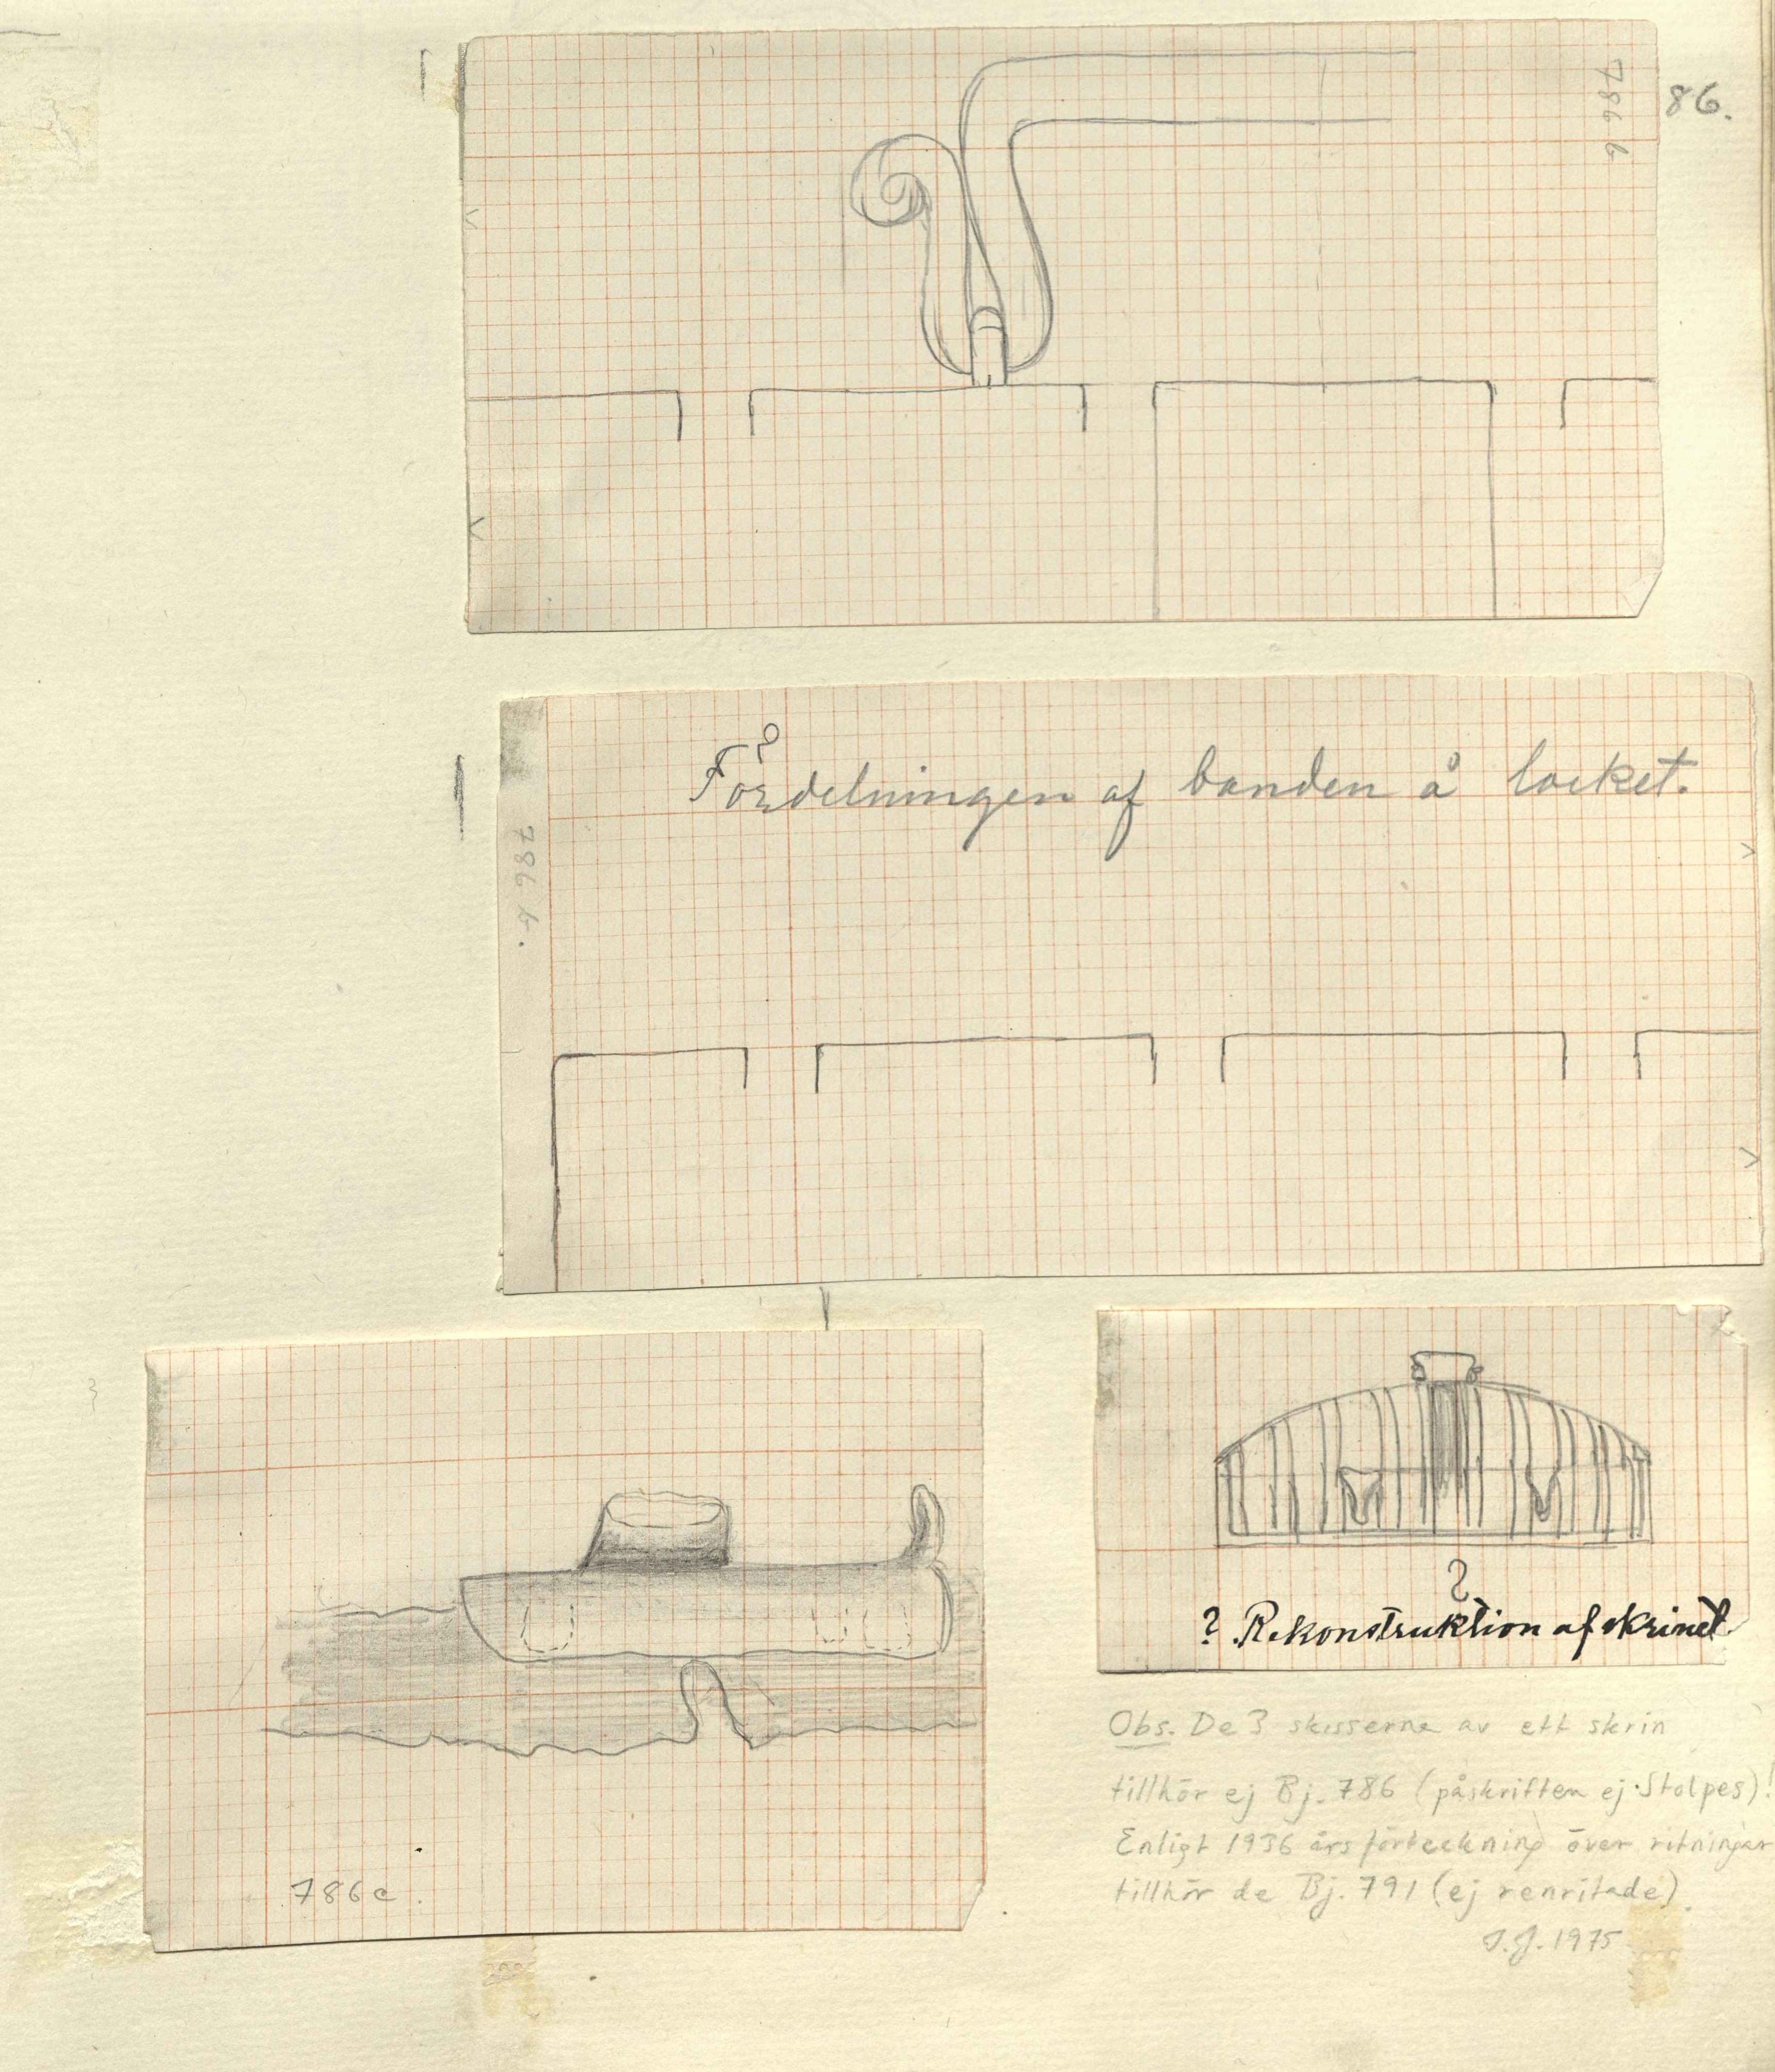 786 b
86.
Fördelningen af banden å locket.
786 b.
2.
?
? Rekonstruktion af skrinet.
Obs. De 3 skisserna av ett skrin
tillhör ej Bj. 786 (påskriften ej Stolpes)!
Enligt 1936 års förteckning över ritningar
tillhör de Bj. 791 (ej renritade).
1975
786c.